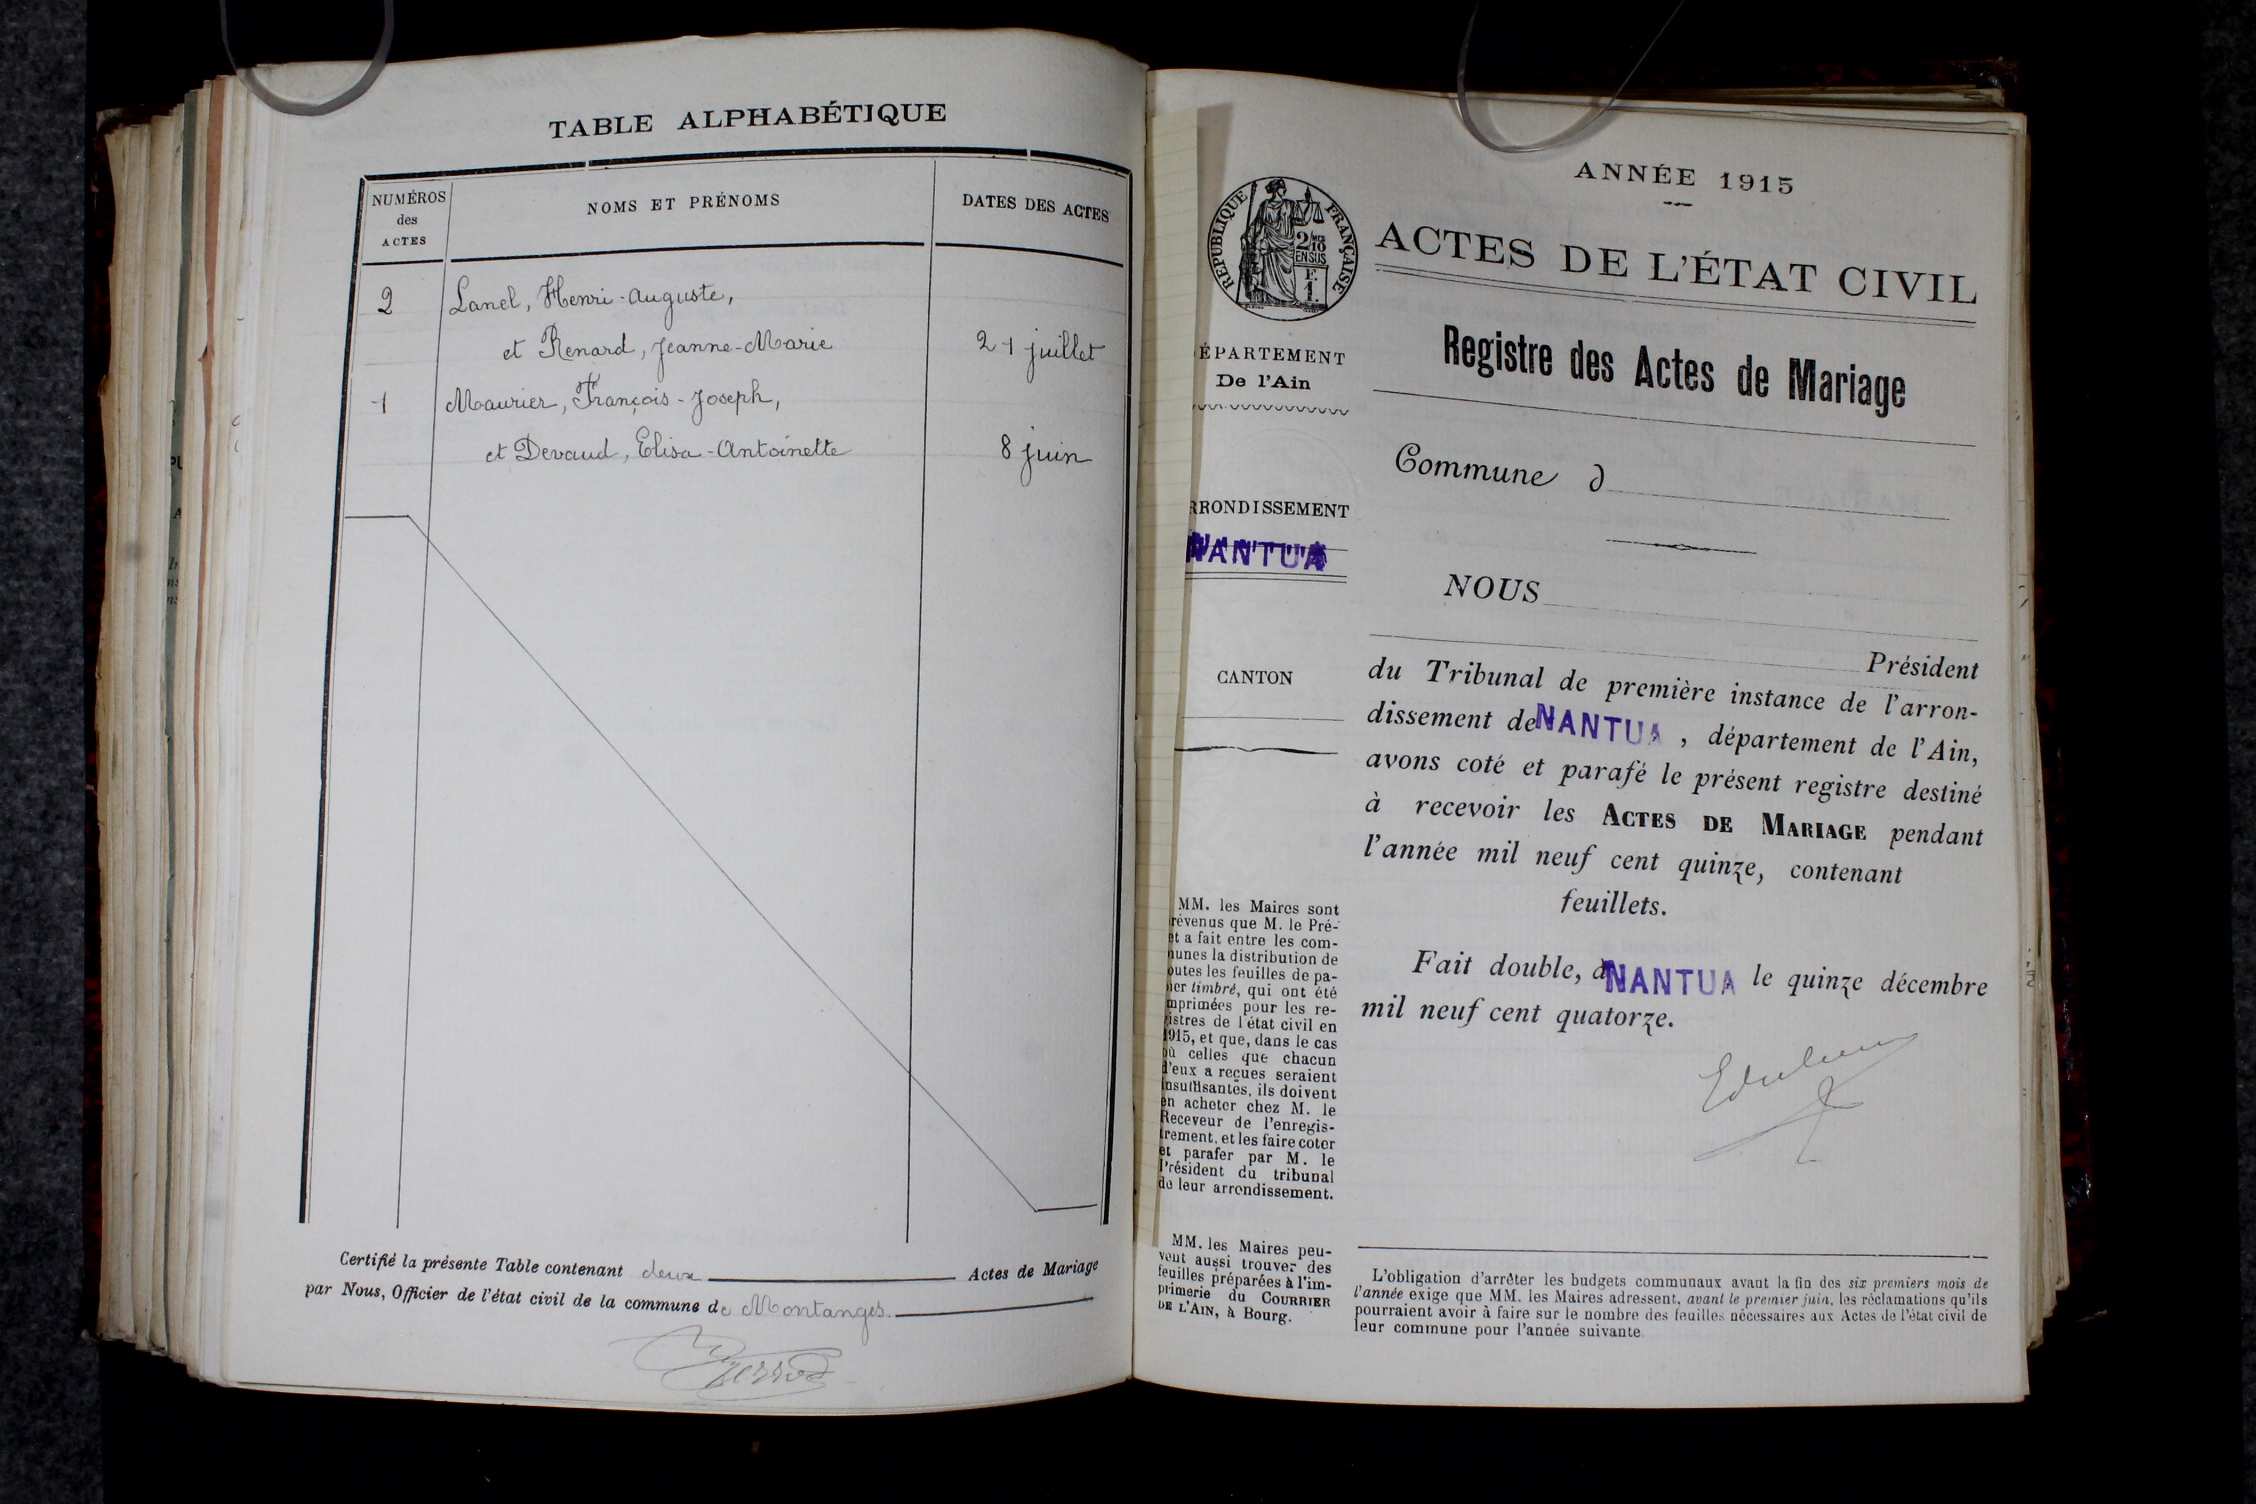 TABLE ALPHABÉTIQUE
NUMÉROS
des
ACTES
NOMS ET PRÉNOMS
DATES DES ACTES
2 Lanel, Henri-Auguste,
et Renard, Jeanne-Marie 21 juillet
1 Maurier, François-Joseph,
et Devaud, Elisa-Antoinette 8 juin
Certifié la présente Table contenant deux Actes de Mariage
par Nous, Officier de l'état civil de la commune de Montanges.
ANNÉE 1915
RÉPUBLIQUE FRANÇAISE
2/10
EN SUS
F.
1.
ACTES DE L'ÉTAT CIVIL
Registre des Actes de Mariage
ÉPARTEMENT
De l'Ain
RRONDISSEMENT
NANTUA
CANTON
Commune d
NOUS
Président
du Tribunal de première instance de l'arron-
dissement de NANTUA, département de l'Ain,
avons coté et parafé le présent registre destiné
à recevoir les ACTES DE MARIAGE pendant
l'année mil neuf cent quinze, contenant
feuillets.
Fait double, à NANTUA le quinze décembre
mil neuf cent quatorze.
MM. les Maires sont
révenus que M. le Pré-
et a fait entre les com-
unes la distribution de
outes les feuilles de pa-
ier timbré, qui ont été
mprimées pour les re-
istres de l'état civil en
1915, et que, dans le cas
où celles que chacun
d'eux a reçues seraient
insuffisantes, ils doivent
en acheter chez M. le
Receveur de l'enregis-
trement, et les faire coter
et parafer par M. le
Président du tribunal
de leur arrondissement.
MM. les Maires peu-
vent aussi trouver des
feuilles préparées à l'im-
primerie du COURRIER
DE L'AIN, à Bourg.
L'obligation d'arrêter les budgets communaux avant la fin des six premiers mois de
l'année exige que MM. les Maires adressent, avant le premier juin, les réclamations qu'ils
pourraient avoir à faire sur le nombre des feuilles nécessaires aux Actes de l'état civil de
leur commune pour l'année suivante.